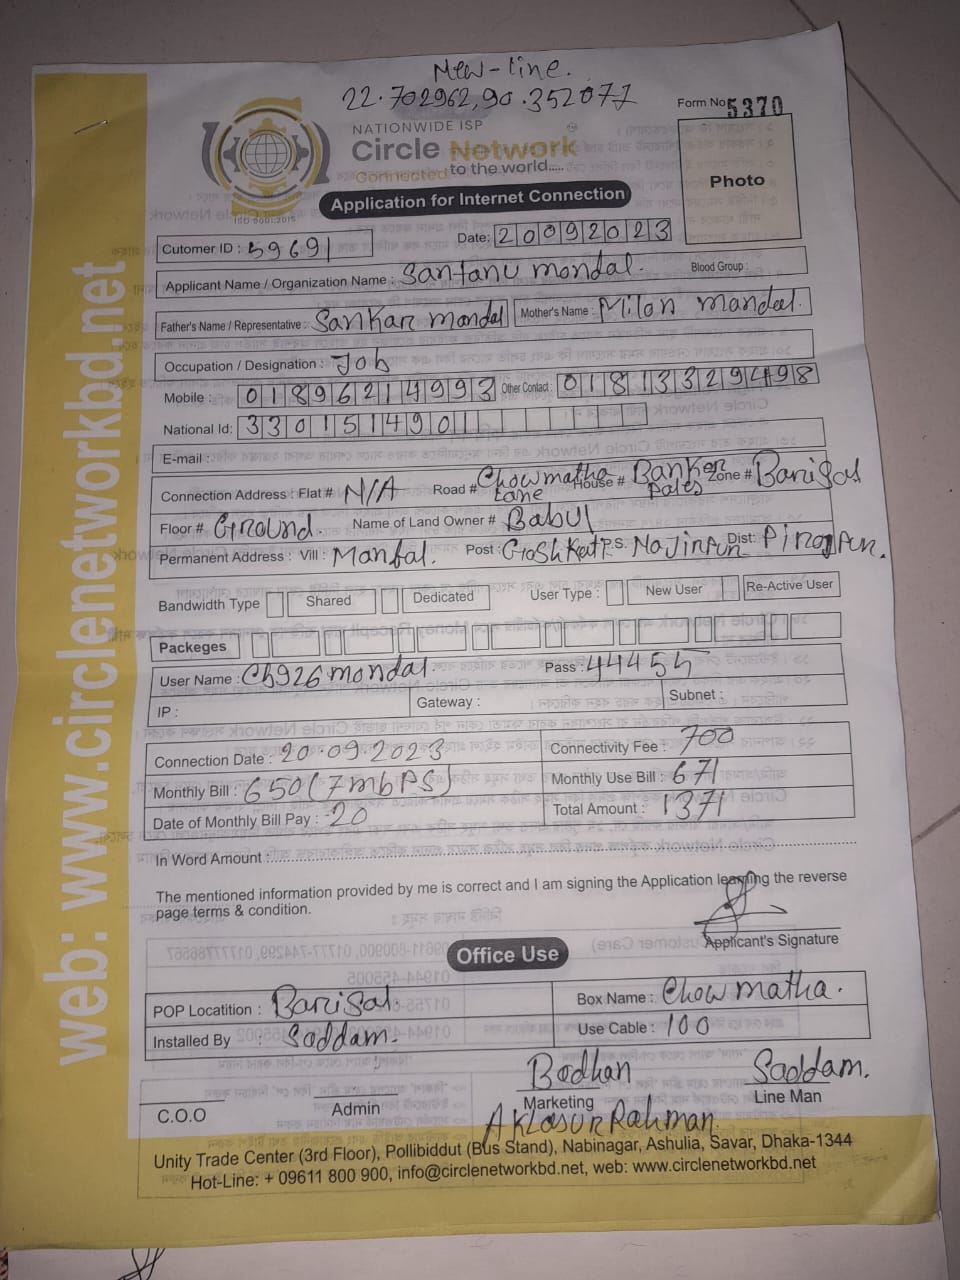 New-line.
22.702962,90.352077
Form No 5370
NATIONWIDE ISP
Circle Network
Connected to the world.....
ISO 9001:2015
Photo
Application for Internet Connection
Cutomer ID : 59691 Date: 20092023
Applicant Name / Organization Name : Santanu mondal. Blood Group :
Father's Name / Representative : Sankar mondal Mother's Name : Milon mandal.
Occupation / Designation : Job
Mobile : 01896214993 Other Contact : 01813329498
National Id: 3301514901
E-mail :
Connection Address : Flat # N/A Road # Chowmatha Lane House # Banker Zone # Barisal
Floor # Ground. Name of Land Owner # Babul
Permanent Address : Vill : Post : P.S. Dist:
Bandwidth Type Shared Dedicated User Type : New User Re-Active User
Packeges
User Name : Cb926mondal Pass : 44455
IP : Gateway : Subnet :
Connection Date : 20-09-2023 Connectivity Fee : 700
Monthly Bill : 650(7mbPS) Monthly Use Bill : 671
Date of Monthly Bill Pay : 20 Total Amount : 1371
In Word Amount :
The mentioned information provided by me is correct and I am signing the Application learning the reverse
page terms & condition.
Applicant's Signature
Office Use
POP Locatition : Barisal. Box Name : Chowmatha.
Installed By : Saddam. Use Cable : 100
Bodhan Saddam.
C.O.O Admin Marketing Line Man
Rahman
Unity Trade Center (3rd Floor), Pollibiddut (Bus Stand), Nabinagar, Ashulia, Savar, Dhaka-1344
Hot-Line: + 09611 800 900, info@circlenetworkbd.net, web: www.circlenetworkbd.net
web: www.circlenetworkbd.net